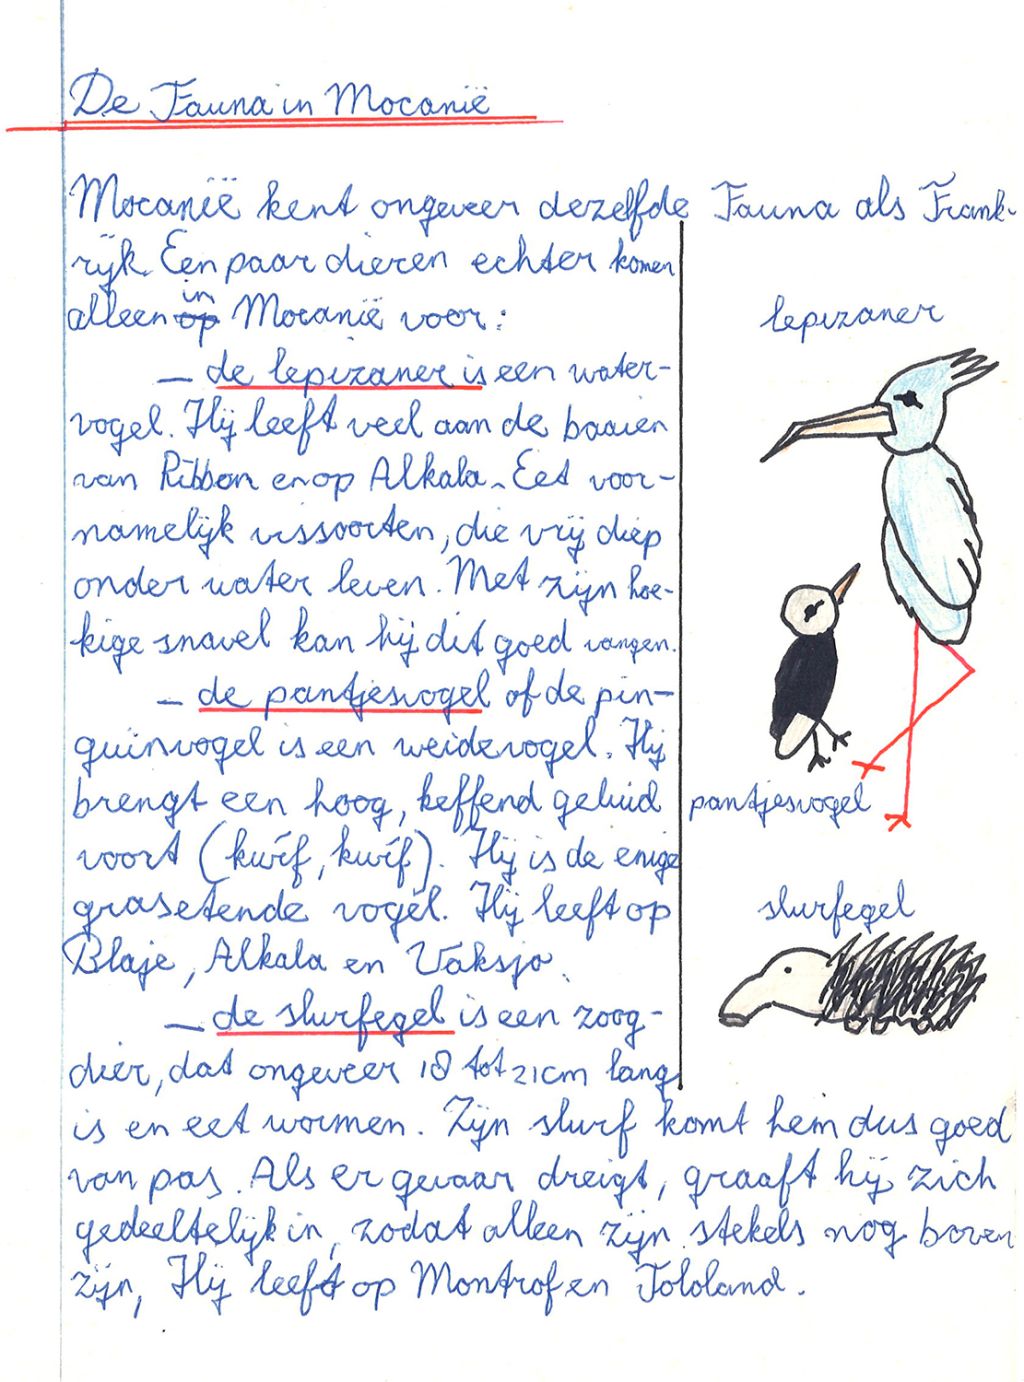 De Fauna in Mocanië
Mocanië kent ongeveer dezelfde Fauna als Frank-
rijk. Een paar dieren echter komen
alleen op in Mocanië voor:
lepizaner
— de lepizaner is een water-
vogel. Hij leeft veel aan de baaien
van Ribbon en op Alkala. Eet voor-
namelijk vissoorten, die vrij diep
onder water leven. Met zijn hoe-
kige snavel kan hij dit goed vangen.
— de pantjesvogel of de pin-
guinvogel is een weidevogel. Hij
brengt een hoog, keffend geluid
pantjesvogel
voort (kwíf, kwíf). Hij is de enige
grasetende vogel. Hij leeft op
slurfegel
Blaje, Alkala en Vaksjo.
— de slurfegel is een zoog-
dier, dat ongeveer 18 tot 21cm lang
is en eet wormen. Zijn slurf komt hem dus goed
van pas. Als er gevaar dreigt, graaft hij zich
gedeeltelijk in, zodat alleen zijn stekels nog boven
zijn, Hij leeft op Montrof en Tololand.